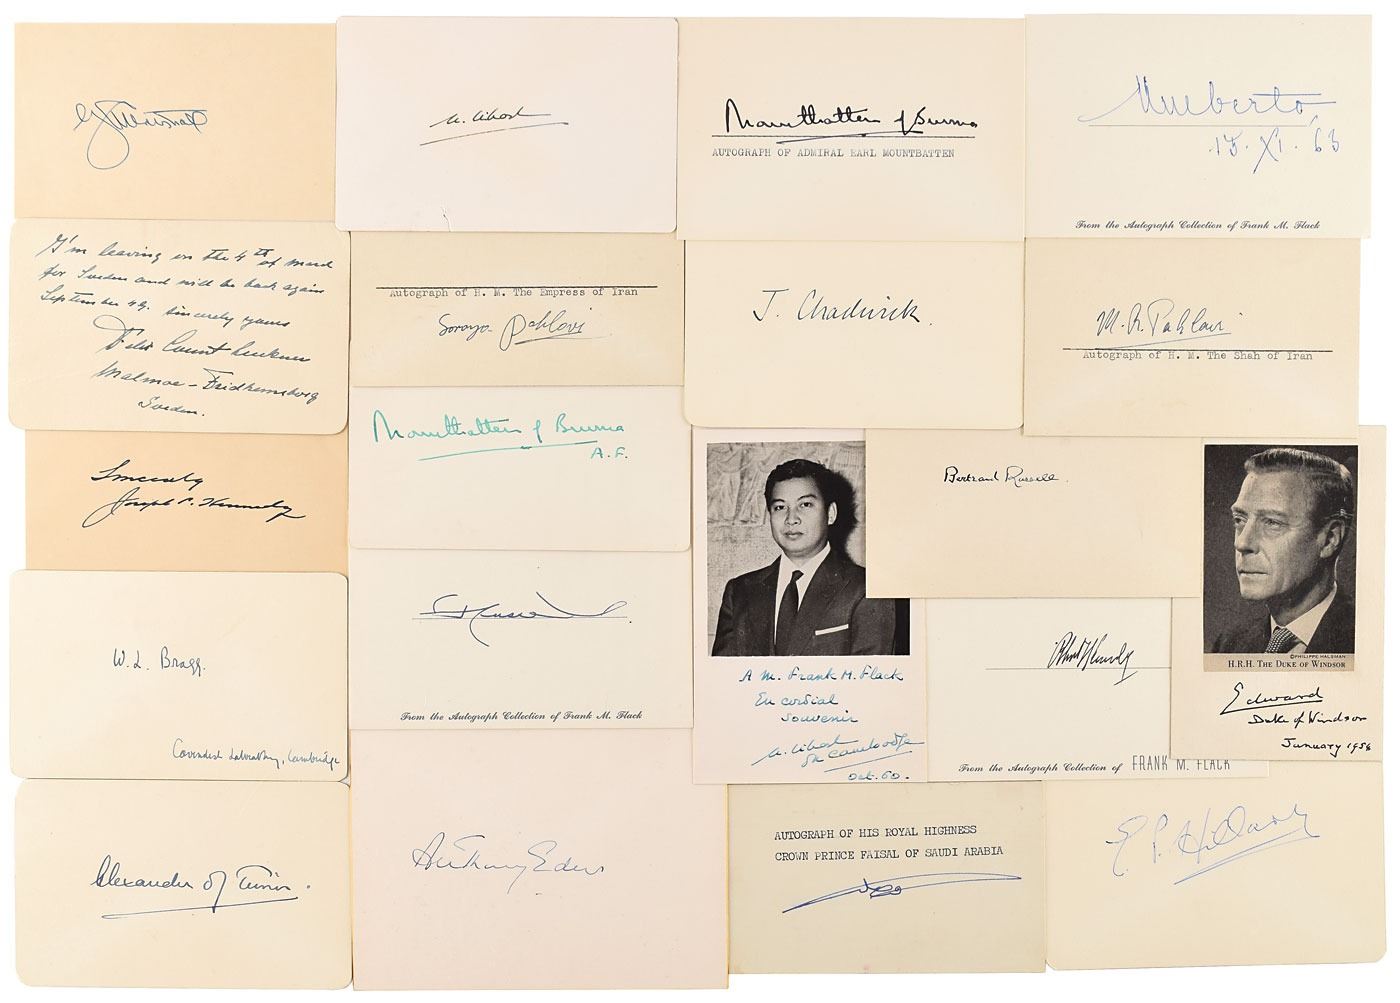 G. C. Marshall
N. Sihanouk
Mountbatten of Burma
AUTOGRAPH OF ADMIRAL EARL MOUNTBATTEN
Umberto
15. XI. 63
From the Autograph Collection of Frank M. Flack
I'm leaving on the 4th of march
for Sweden and will be back again
September 49. Sincerely yours
Felix Count Luckner
Malmoe - Fridhemsborg
Sweden.
Autograph of H. M. The Empress of Iran
Soraya Pahlavi
J. Chadwick.
M. R. Pahlavi
Autograph of H. M. The Shah of Iran
Sincerely
Joseph P. Kennedy
Mountbatten of Burma
A.F.
Bertrand Russell.
W. L. Bragg.
Cavendish Laboratory, Cambridge
From the Autograph Collection of Frank M. Flack
A M. Frank M. Flack
En cordial
souvenir
N. Sihanouk
du Cambodge
Oct. 60.
Robert Kennedy
From the Autograph Collection of FRANK M. FLACK
©PHILIPPE HALSMAN
H.R.H. THE DUKE OF WINDSOR
Edward
Duke of Windsor
January 1956
Alexander of Tunis.
Anthony Eden
AUTOGRAPH OF HIS ROYAL HIGHNESS
CROWN PRINCE FAISAL OF SAUDI ARABIA
E. P. Hillary